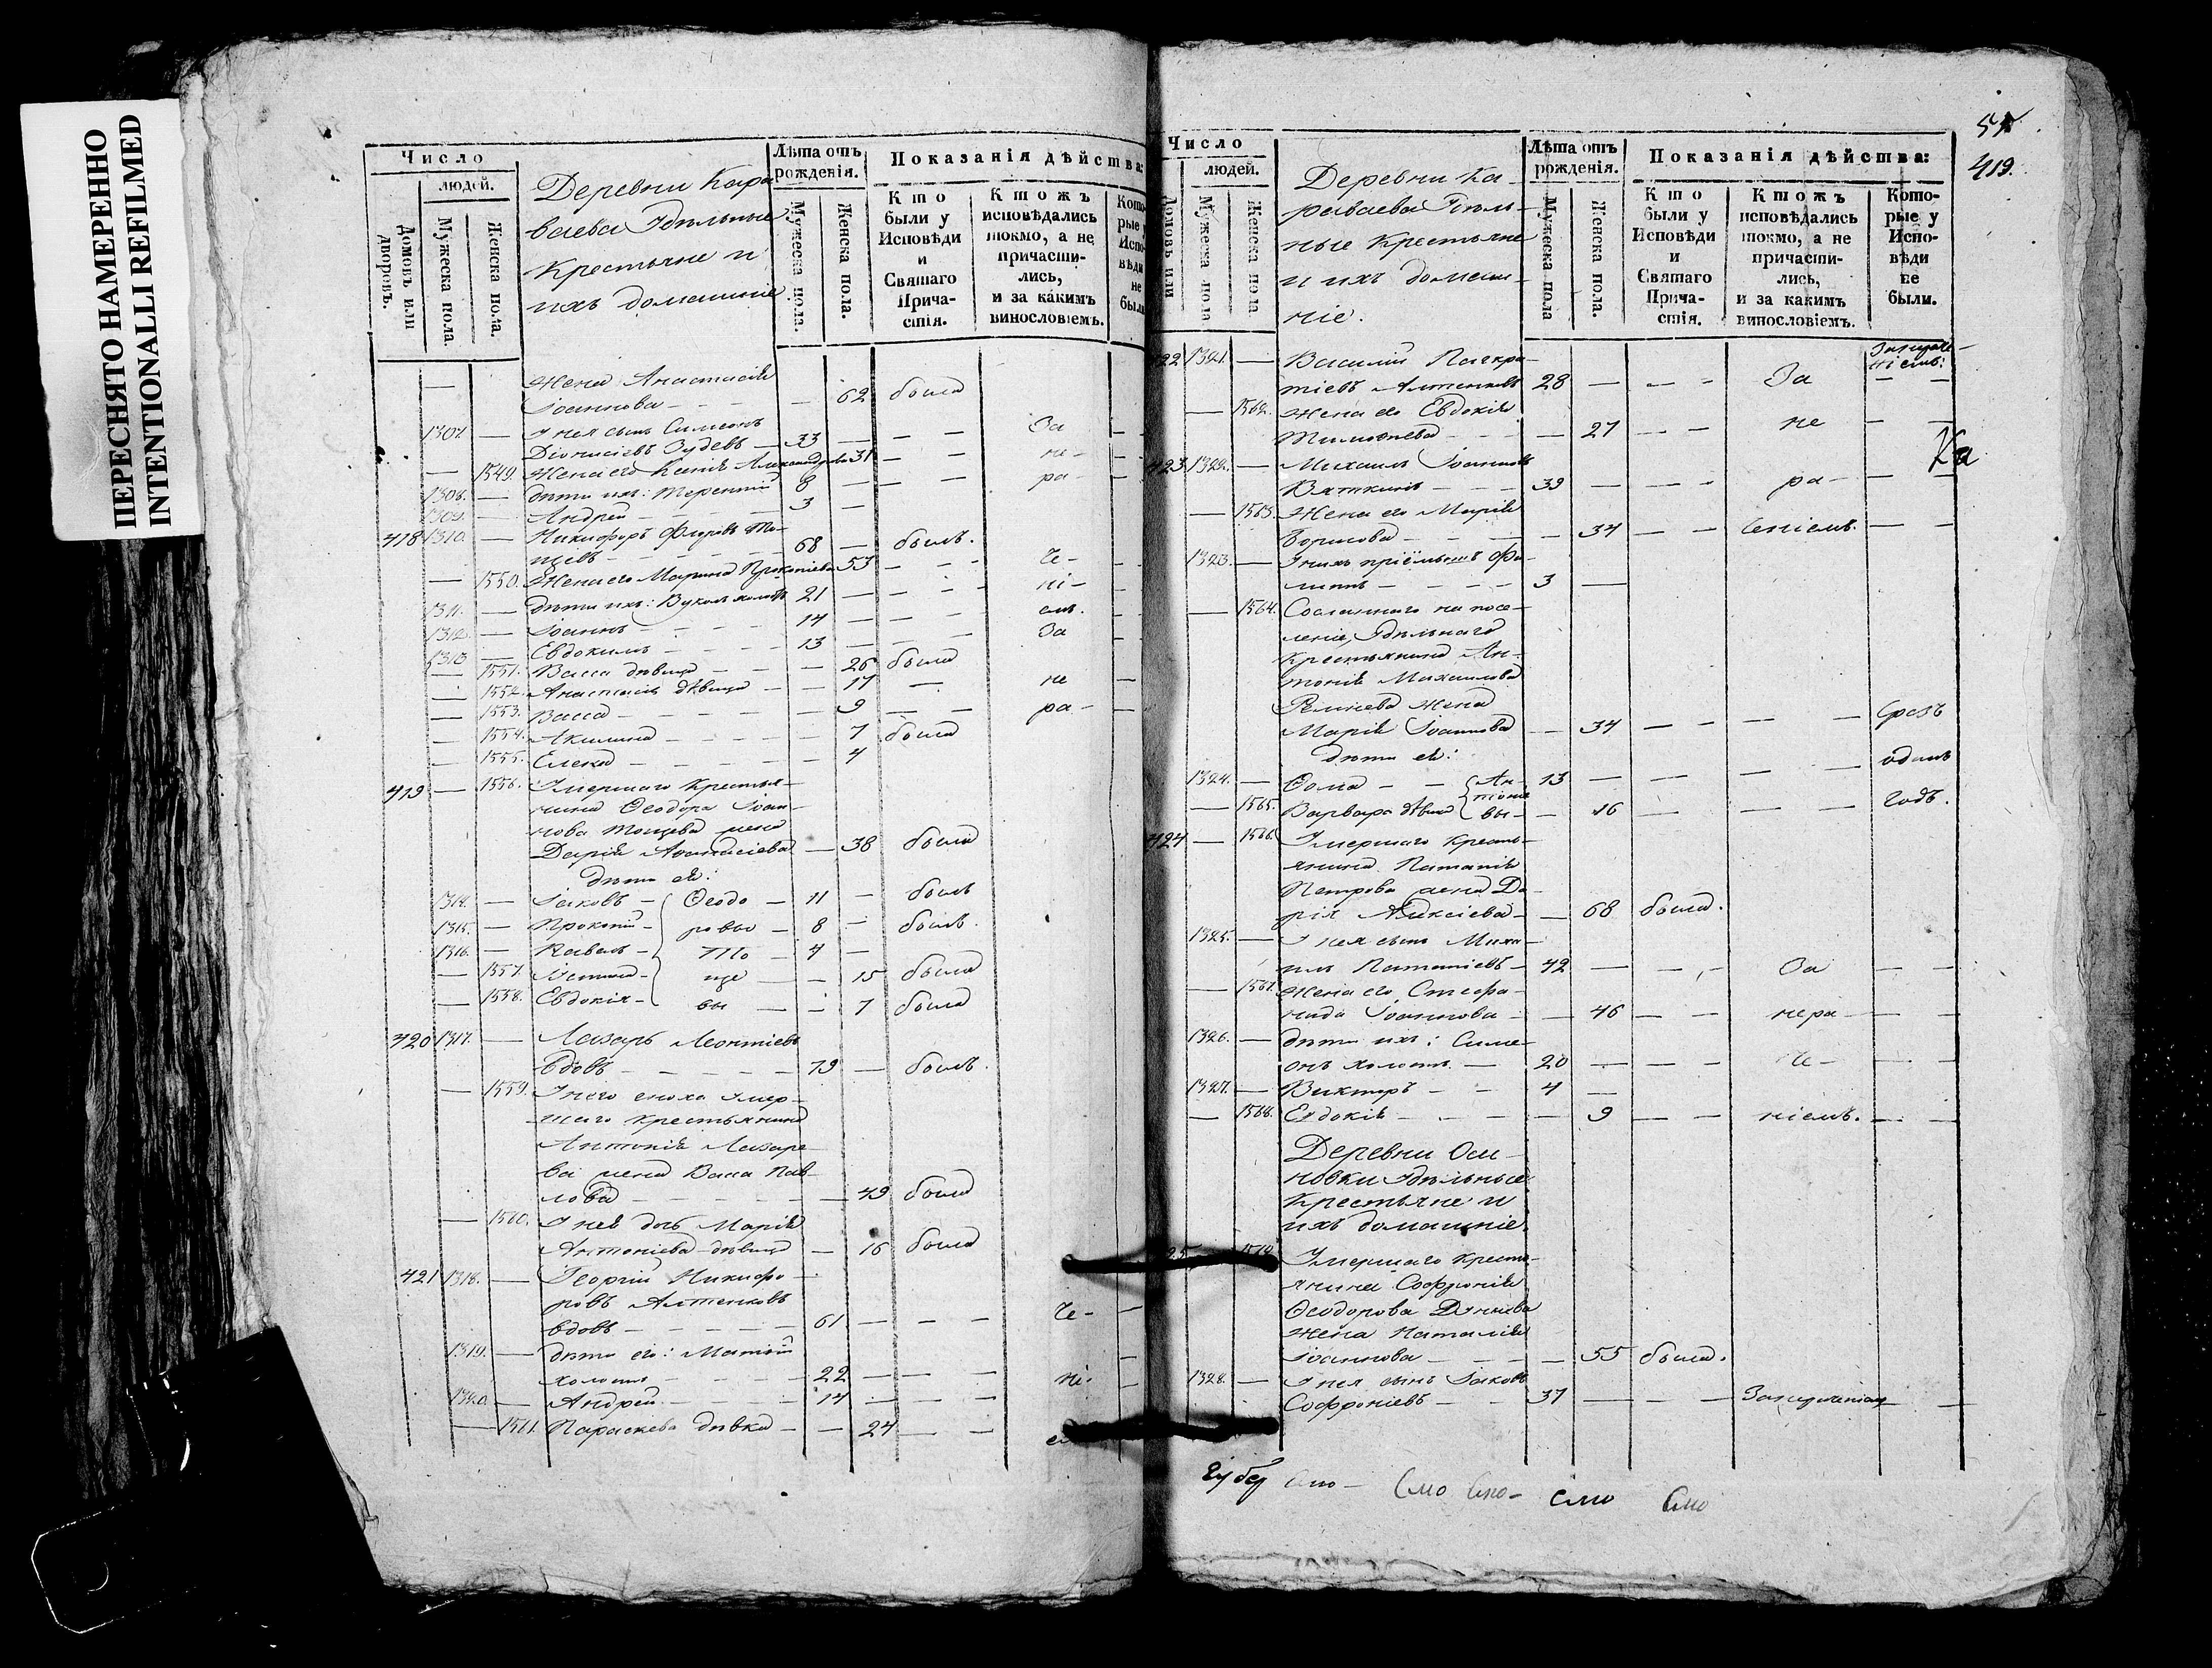 ПЕРЕСНЯТО НАМЕРЕННО
INTENTIONALLI REFILMED
Число
людей.
Домовъ или дворовъ.
Мужеска пола.
Женска пола.
Деревни Кара
ваева Удѣльные
Крестьяне и
ихъ домашніе
Лѣта отъ рожденія.
Мужеска пола.
Женска пола.
Показанія дѣйства:
Кто были у Исповѣди и Святаго Причастія.
Ктожъ исповѣдались токмо, а не причастились, и за какимъ винословіемъ.
Которые у Исповѣди не были
— Жена Анастасія
Іоаннова — — — — 62 была
1307. — У нея сынъ Симеонъ За
Діонисіевъ Зудевъ — 33 — — —
— 1549. Жена его Ксенія Александрова 31 — — не-
1308. — дѣти ихъ: Терентій 8 — — — ра-
1309. — Андрей — — — 3 —
418 1310. — Никифоръ Флоровъ То-
щевъ — — — 68 — былъ.
— 1550. Жена его Марина Прокопіева 53 — — че-
1311. — дѣти ихъ: Вуколъ холостъ 21 — — — ні-
1312. — Іоаннъ — — — 14 — — — емъ.
1313 — Евдокимъ — — — 13 — — — За
— 1551. Васса дѣвица — — — 26 была
— 1552. Анастасія дѣвица — — 17 — не
— 1553. Васса — — — — 9 — — ра-
— 1554. Акилина — — — — 7 была
— 1555. Елена — — — — 4
419 — 1556. Умершаго Крестья-
нина Ѳеодора Іоан-
нова Тощева жена
Дарія Аѳанасіева — 38 была
дѣти ея:
1314. — Іаковъ — Ѳеодо — 11 — былъ
1315. — Прокопій — ровы — 8 — былъ.
1316. — Павелъ — То — 4 —
— 1557. — ще — — 15 была
— 1558. Евдокія — вы — — 7 была
420 1317. — Лазарь Леонтіевъ
вдовъ — — — — 79 — былъ.
— 1559. У него сноха умер-
шаго крестьянина
Антонія Лазаре-
ва жена Васса Пав-
лова — — — — 49 была
— 1560. У нея дочь Марія
Антоніева дѣвица — 16 была
421 1318. — Георгій Никифо-
ровъ Алтенковъ
вдовъ — — — — 61 — — — че-
1319. — дѣти его: Матѳій
холостъ — — — 22 — — — ні-
1320. — Андрей — — — 14 — — —
— 1561. Параскева дѣвка — — 24 — —
57
419.
Число
людей.
Домовъ или
Мужеска пола
Женска пола
Деревни Ка-
раваева Удѣль-
ные Крестьяне
и ихъ домаш-
ніе.
Лѣта отъ рожденія.
Мужеска пола
Женска пола.
Показанія дѣйства:
Кто были у Исповѣди и Святаго Причастія.
Ктожъ исповѣдались токмо, а не причастились, и за какимъ винословіемъ.
Которые у Исповѣди не были.
422 1321. — Василій Панкра-
тіевъ Алтенковъ 28 — — — За — —
— 1562. Жена его Евдокія
Тимоѳеева — — — 27 — — не — —
Ка
423 1322. — Михаилъ Іоанновъ
Вяткинъ — — — 39 — — — ра- — —
— 1563. Жена его Марія
Борисова — — — — 34 — — ченіемъ. — —
1323. — У нихъ пріёмышъ Фи-
липпъ — — — — 3 —
— 1564. Сосланнаго на посе-
леніе, Удѣльнаго
Крестьянина Ан-
тонія Михаилова
жена
Марія Іоаннова — 34 — — — — чрезъ
дѣти ея: одинъ
1324. — Ѳома — — Ан- 13 — — — —
тоніе
— 1565. Варвара дѣвица вы- — 16 — — — годъ.
424 — 1566. Умершаго Кресть-
янина Потапія
Петрова жена Да-
рія Алексіева — — 68 была.
1325. — У нея сынъ Миха-
илъ Потапіевъ — 42 — — — За — —
— 1567. Жена его Стефа-
нида Іоаннова — — 46 — — нера- — —
1326. — дѣти ихъ: Симе-
онъ холостъ. — 20 — — — че- — —
1327. — Викторъ — — 4 —
— 1568. Евдокія — — — — 9 — — ніемъ. — —
Деревни Оси-
новки Удѣльные
Крестьяне и
ихъ домашніе.
Умершаго Кресть-
янина Софронія
Ѳеодорова
жена Наталія
Іоаннова — — — — 55 была.
1328. — У нея сынъ Іаковъ
Софроніевъ — — 37 — — —
Губер Смо Смо Смо Смо